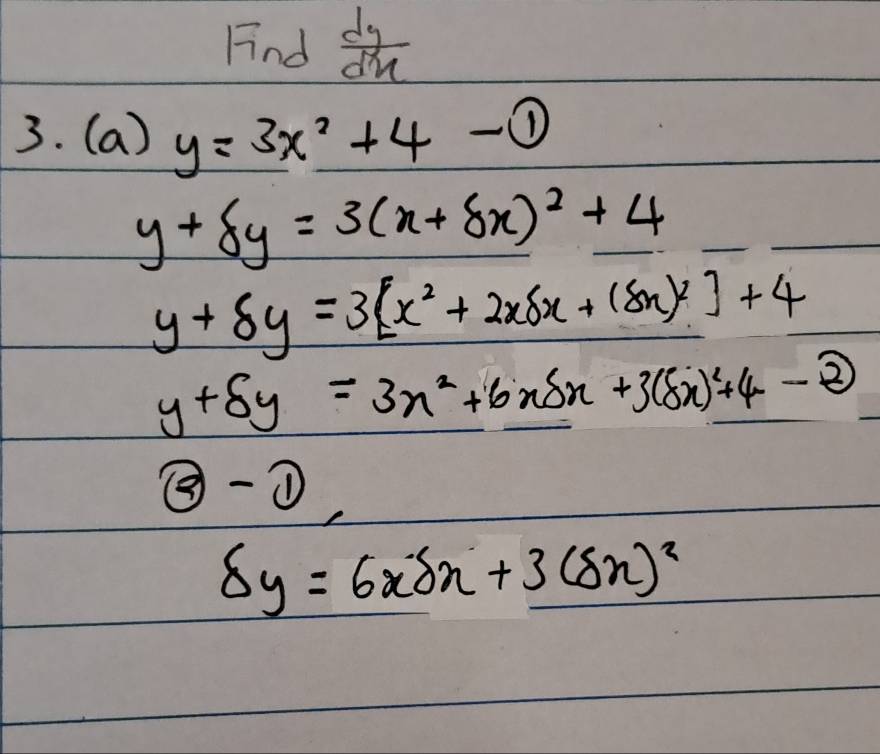 Find dy/dx
3. (a) y = 3x² + 4 - ①
y + δy = 3(x + δx)² + 4
y + δy = 3[x² + 2xδx + (δx)²] + 4
y + δy = 3x² + 6xδx + 3(δx)² + 4 - ②
② - ①,
δy = 6xδx + 3(δx)²